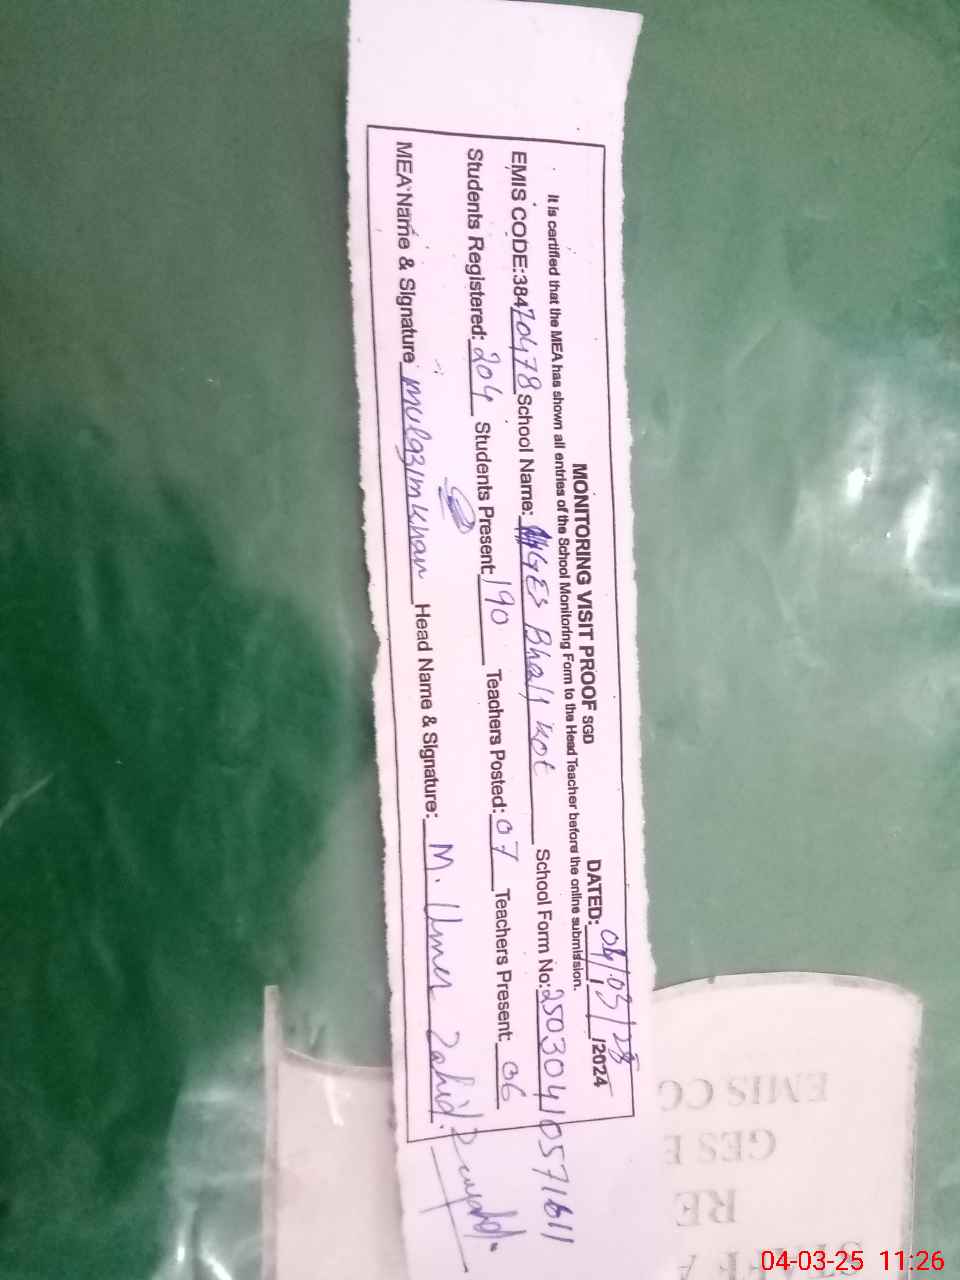 MONITORING VISIT PROOF SGD DATED: 04/03/25 /2024
It is certified that the MEA has shown all entries of the School Monitoring Form to the Head Teacher before the online submission.
EMIS CODE:38470478 School Name: GES Bhall Kot School Form No: 2503041057 1611
Students Registered: 204 Students Present: 190 Teachers Posted: 07 Teachers Present: 06
MEA Name & Signature mulazim Khan Head Name & Signature: M. Umer Zahid
EMIS CO
GES E
RE
STAFF A
04-03-25 11:26